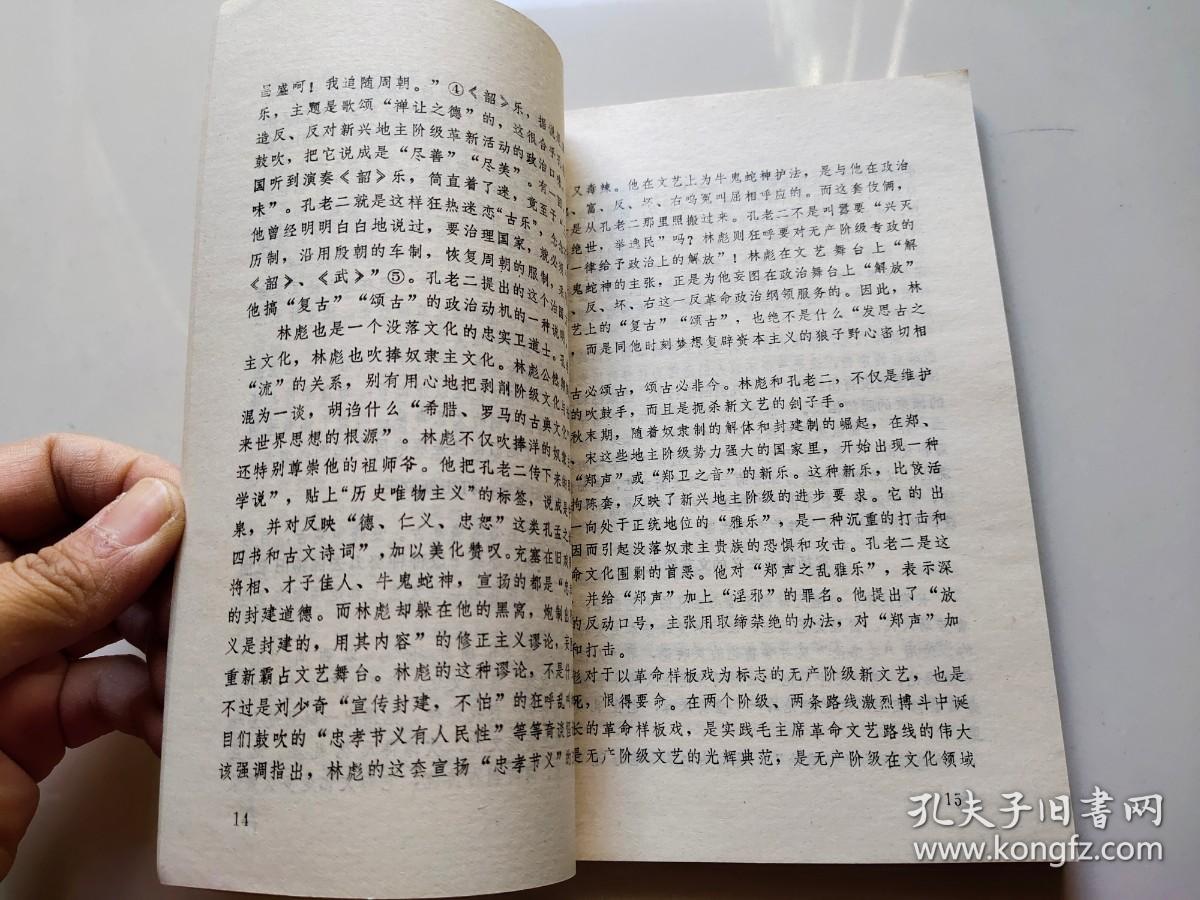 昌盛呵！我追随周朝。”④《韶》乐，据说是
乐，主题是歌颂“禅让之德”的，这很合乎孔
造反、反对新兴地主阶级革新活动的政治口
鼓吹，把它说成是“尽善”“尽美”。有一
国听到演奏《韶》乐，简直着了迷，竟至于“
味”。孔老二就是这样狂热迷恋“古乐”，
他曾经明明白白地说过，要治理国家，就必须
历制，沿用殷朝的车制，恢复周朝的服制，
《韶》、《武》”⑤。孔老二提出的这个治国
他搞“复古”“颂古”的政治动机的一种说明
林彪也是一个没落文化的忠实卫道士。孔
主文化，林彪也吹捧奴隶主文化。林彪公然
“流”的关系，别有用心地把剥削阶级文化与
混为一谈，胡诌什么“希腊、罗马的古典文化
来世界思想的根源”。林彪不仅吹捧洋的奴隶
还特别尊崇他的祖师爷。他把孔老二传下来的
学说”，贴上“历史唯物主义”的标签，说成是
泉，并对反映“德、仁义、忠恕”这类孔孟之
四书和古文诗词”，加以美化赞叹。充塞在旧戏
将相、才子佳人、牛鬼蛇神，宣扬的都是“忠
的封建道德。而林彪却躲在他的黑窝，炮制出
义是封建的，用其内容”的修正主义谬论，
重新霸占文艺舞台。林彪的这种谬论，不是什
不过是刘少奇“宣传封建，不怕”的狂呼乱叫
目们鼓吹的“忠孝节义有人民性”等等奇谈
该强调指出，林彪的这套宣扬“忠孝节义”的
14
又毒辣。他在文艺上为牛鬼蛇神护法，是与他在政治
、富、反、坏、右鸣冤叫屈相呼应的。而这套伎俩，
是从孔老二那里照搬过来。孔老二不是叫嚣要“兴灭
绝世，举逸民”吗？林彪则狂呼要对无产阶级专政的
一律给予政治上的解放”！林彪在文艺舞台上“解
鬼蛇神的主张，正是为他妄图在政治舞台上“解放”
、反、坏、右这一反革命政治纲领服务的。因此，林
艺上的“复古”“颂古”，也绝不是什么“发思古之
，而是同他时刻梦想复辟资本主义的狼子野心密切相
古必颂古，颂古必非今。林彪和孔老二，不仅是维护
的吹鼓手，而且是扼杀新文艺的刽子手。
秋末期，随着奴隶制的解体和封建制的崛起，在郑、
、宋这些地主阶级势力强大的国家里，开始出现一种
“郑声”或“郑卫之音”的新乐。这种新乐，比较活
拘陈套，反映了新兴地主阶级的进步要求。它的出
一向处于正统地位的“雅乐”，是一种沉重的打击和
因而引起没落奴隶主贵族的恐惧和攻击。孔老二是这
命文化围剿的首恶。他对“郑声之乱雅乐”，表示深
，并给“郑声”加上“淫邪”的罪名。他提出了“放
的反动口号，主张用取缔禁绝的办法，对“郑声”加
和打击。
彪对于以革命样板戏为标志的无产阶级新文艺，也是
死，恨得要命。在两个阶级、两条路线激烈搏斗中诞
长的革命样板戏，是实践毛主席革命文艺路线的伟大
是无产阶级文艺的光辉典范，是无产阶级在文化领域
15
孔夫子旧书网
www.kongfz.com